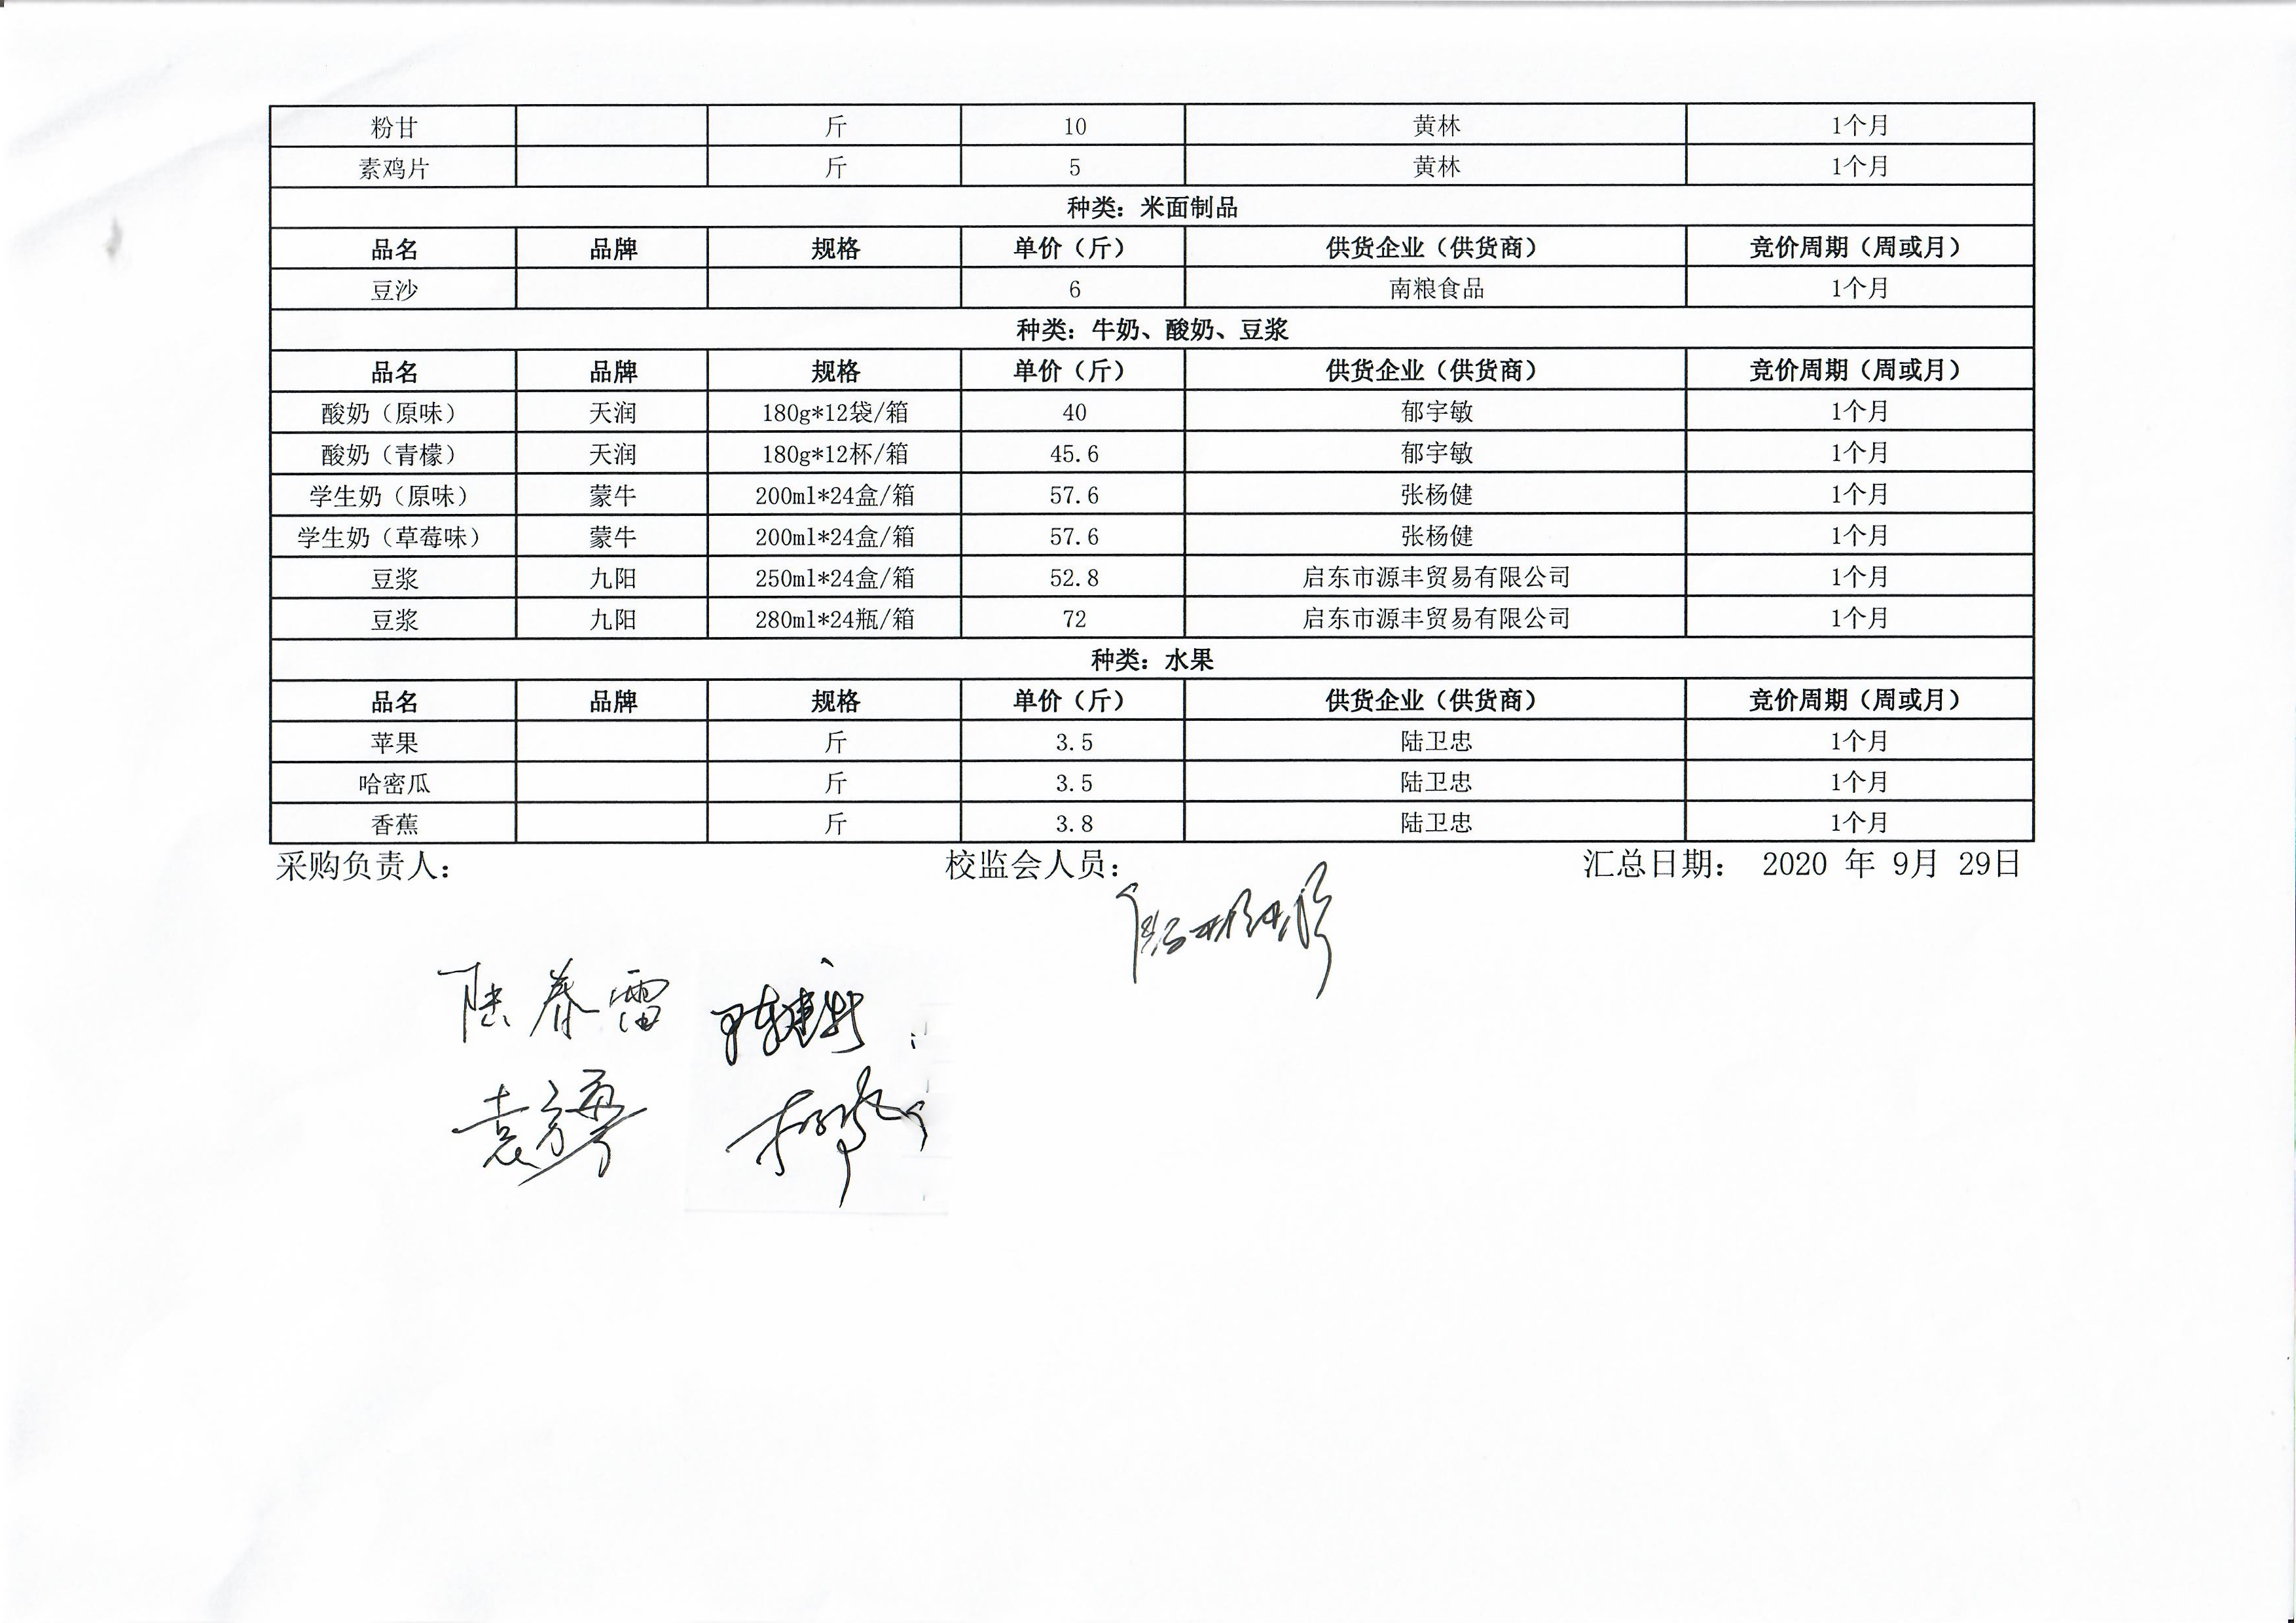 粉甘 斤 10 黄林 1个月
素鸡片 斤 5 黄林 1个月
种类：米面制品
品名 品牌 规格 单价（斤） 供货企业（供货商） 竞价周期（周或月）
豆沙 6 南粮食品 1个月
种类：牛奶、酸奶、豆浆
品名 品牌 规格 单价（斤） 供货企业（供货商） 竞价周期（周或月）
酸奶（原味） 天润 180g*12袋/箱 40 郁宇敏 1个月
酸奶（青檬） 天润 180g*12杯/箱 45.6 郁宇敏 1个月
学生奶（原味） 蒙牛 200ml*24盒/箱 57.6 张杨健 1个月
学生奶（草莓味） 蒙牛 200ml*24盒/箱 57.6 张杨健 1个月
豆浆 九阳 250ml*24盒/箱 52.8 启东市源丰贸易有限公司 1个月
豆浆 九阳 280ml*24瓶/箱 72 启东市源丰贸易有限公司 1个月
种类：水果
品名 品牌 规格 单价（斤） 供货企业（供货商） 竞价周期（周或月）
苹果 斤 3.5 陆卫忠 1个月
哈密瓜 斤 3.5 陆卫忠 1个月
香蕉 斤 3.8 陆卫忠 1个月
采购负责人： 校监会人员： 汇总日期： 2020 年 9月 29日
陆春雷